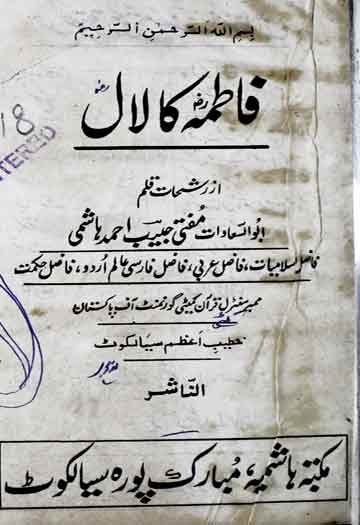 بسم اللہ الرحمٰن الرحیم
فاطمہؓ کا لالؓ
از رشحات قلم
ابوالسعادات مفتی حبیب احمد ہاشمی
فاضل اسلامیات، فاضل عربی، فاضل فارسی عالم اردو، فاضل حکمت
ممبر سنٹرل قرآن کمیٹی گورنمنٹ آف پاکستان
خطیب اعظم سیالکوٹ
الناشر
مکتبہ ہاشمیہ، مبارک پورہ سیالکوٹ
18
NTERED